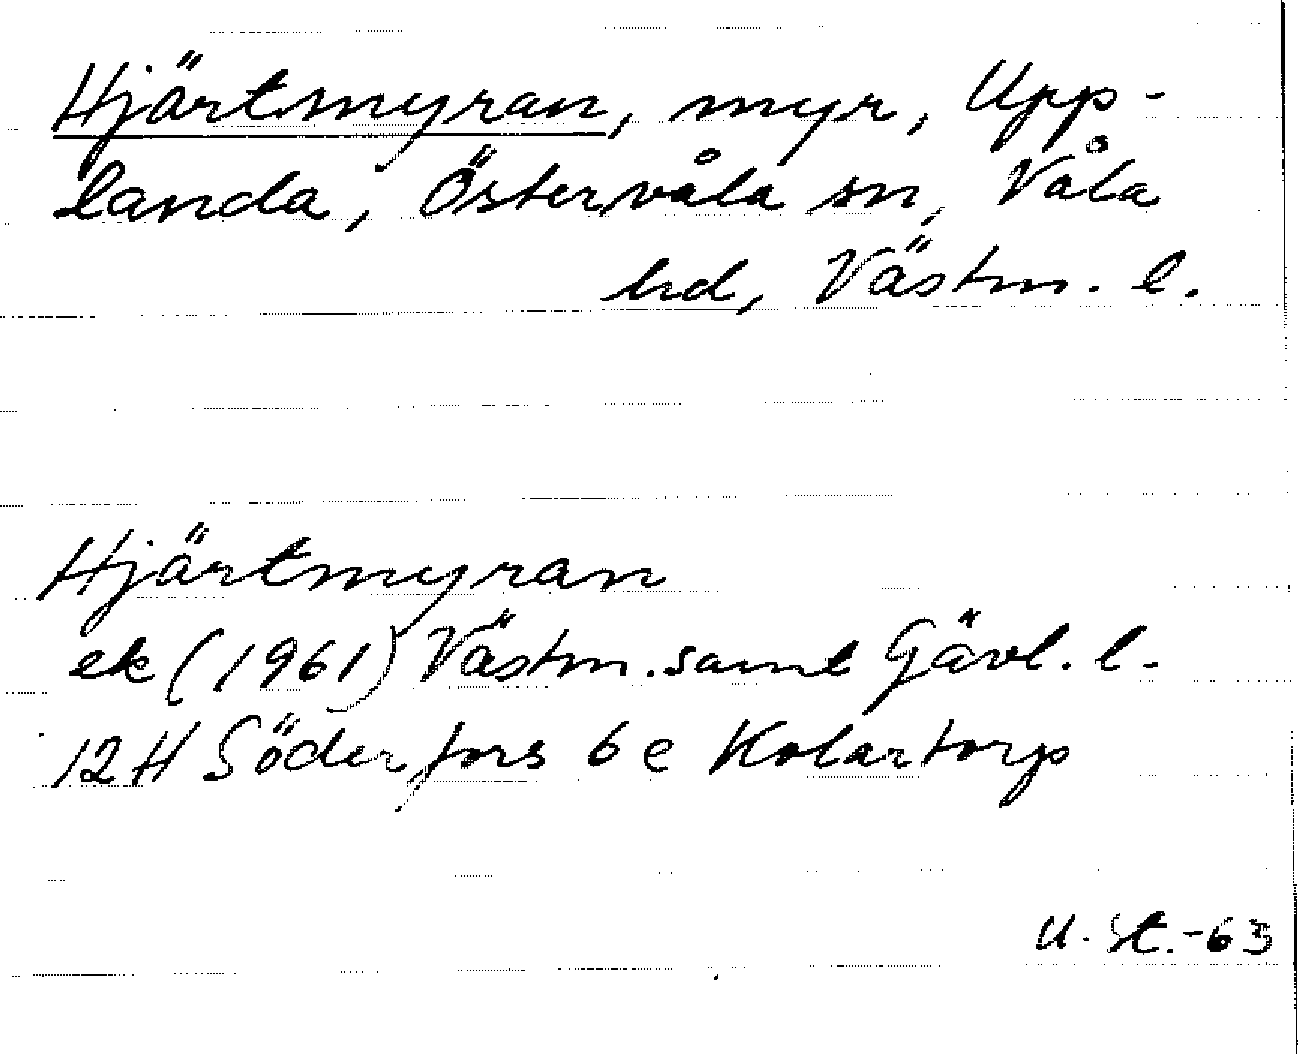 Hjärtmyran, myr, Upp-
landa, Östervåla sn, Våla
hd, Västm. l.
Hjärtmyran
ek (1961) Västm. samt Gävl. l.
12H Söderfors 6 e Kolartorp
U. St. -63